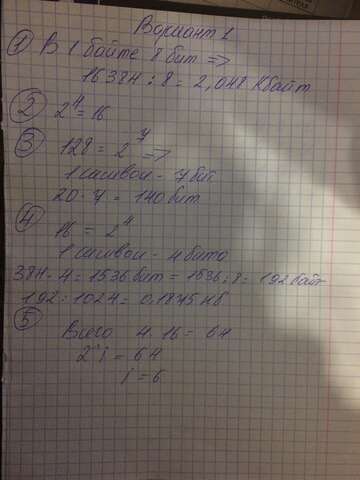 Вариант 1
① В 1 байте 8 бит =>
16384 : 8 = 2,048 Кбайт
② 2^4 = 16
③ 128 = 2^7 =>
1 символ - 7 бит
20 · 7 = 140 бит
④ 16 = 2^4
1 символ - 4 бита
384 · 4 = 1536 бит = 1536 : 8 = 192 байт
192 : 1024 = 0,1875 Кб
⑤ Всего 4 · 16 = 64
2^i = 64
i = 6